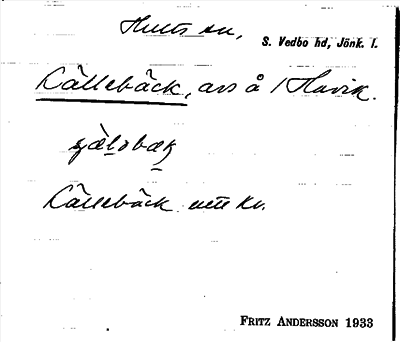 Hults sn,
S. Vedbo hd, Jönk. l.
Källebäck, avs å / Havik.
Källebäck utt kv.
FRITZ ANDERSSON 1933